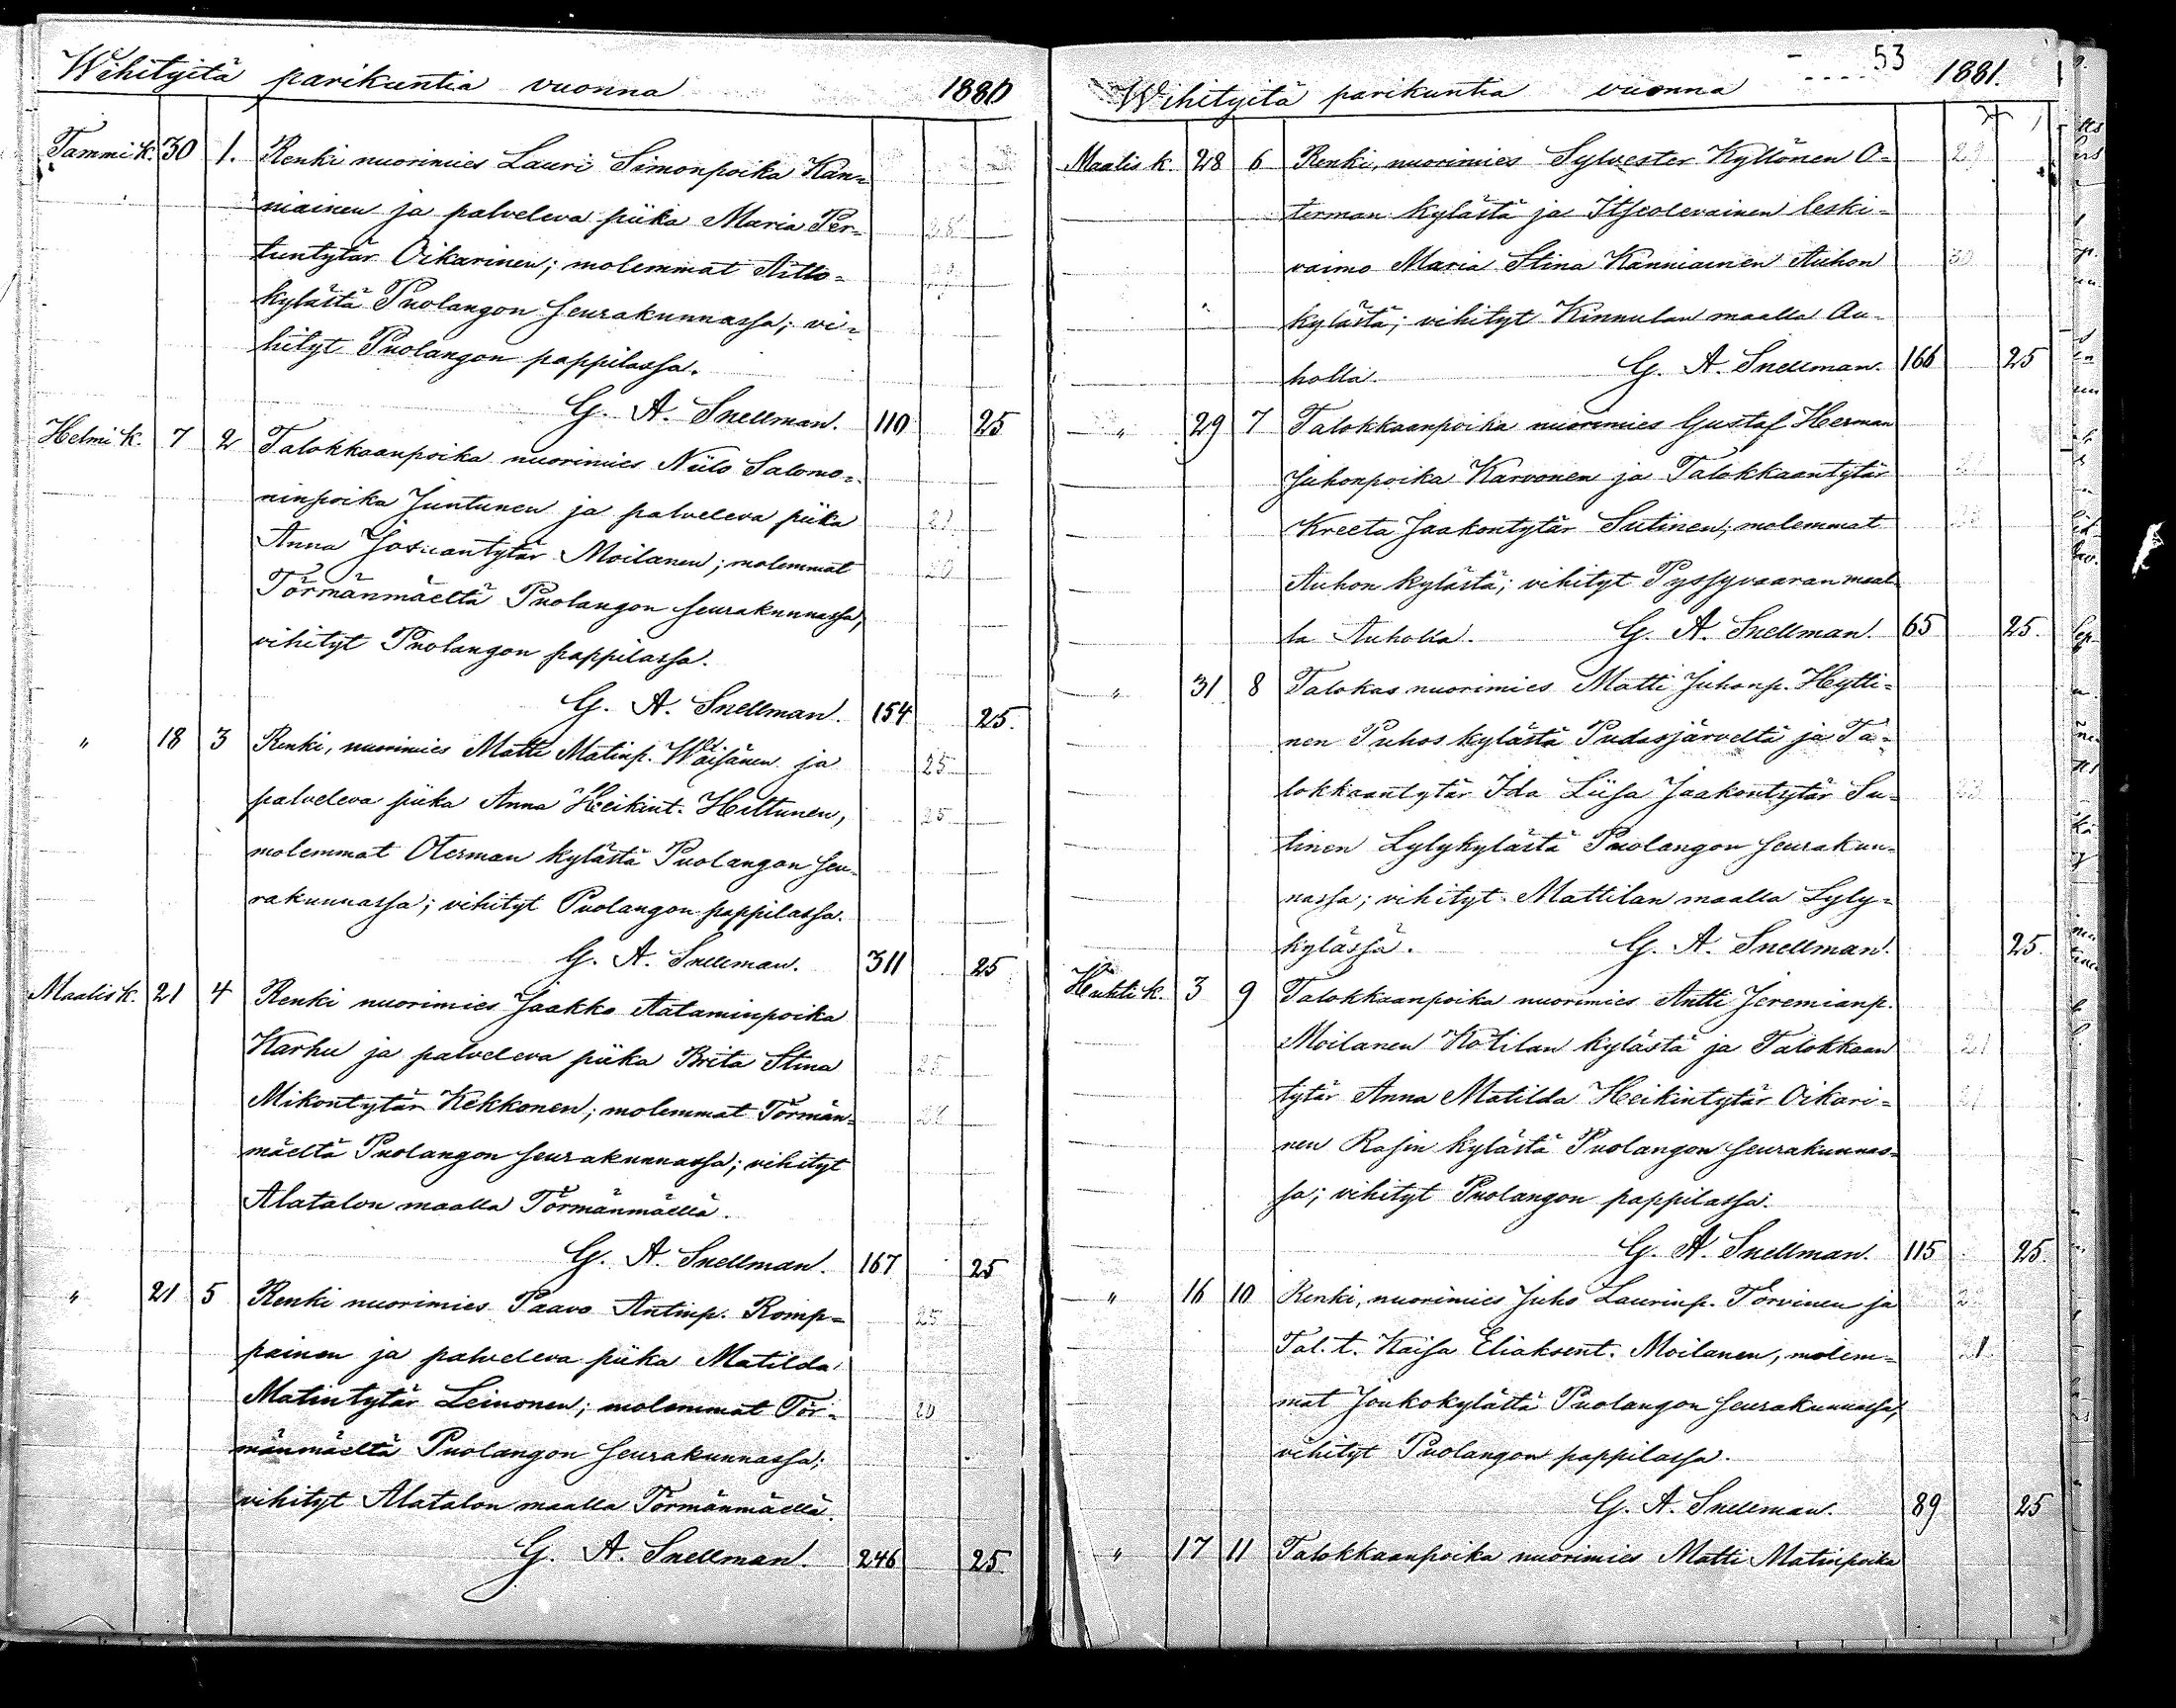 Wihityitä parikuntia vuonna 1880
Tammi k. 30 1. Renki nuorimies Lauri Simonpoika Kan=
niainen ja palveleva piika Maria Per=
tuntytär Oikarinen; molemmat Aitto=
kylästä Puolangon seurakunnassa; vi=
hityt Puolangon pappilassa.
G. A. Snellman. 110 25
Helmi k. 7 2 Talokkaanpoika nuorimies Niilo Salomo=
ninpoika Juntunen ja palveleva piika 21
Anna Josuantytär Moilanen; molemmat 20
Törmänmäeltä Puolangon seurakunnassa,
vihityt Puolangon pappilassa.
G. A. Snellman. 154 25.
" 18 3 Renki, nuorimies Matti Matinp. Wäisänen ja 25
palveleva piika Anna Heikint. Hiltunen, 25
molemmat Oterman kylästä Puolangon seu=
rakunnassa; vihityt Puolangon pappilassa.
G. A. Snellman. 311 25
Maalis k. 21 4 Renki nuorimies Jaakko Aataminpoika
Karhu ja palveleva piika Brita Stina 25
Mikontytär Kekkonen; molemmat Törmän=
mäeltä Puolangon seurakunnassa; vihityt
Alatalon maalla Törmänmäellä.
G. A. Snellman. 167 25
" 21 5 Renki nuorimies Paavo Antinp. Romp= 25
painen ja palveleva piika Matilda
Matintytär Leinonen; molemmat Tör= 20
mänmäeltä Puolangon seurakunnassa;
vihityt Alatalon maalla Törmänmäellä.
G. A. Snellman. 246 25.
53
Wihityitä parikuntia vuonna 1881.
Maalis k. 28 6 Renki, nuorimies Sylvester Kyllönen O=
terman kylästä ja Itseolevainen leski=
vaimo Maria Stina Kanniainen Auhon 30
kylästä; vihityt Kinnulan maalla Au=
holla. G. A. Snellman. 166 25
" 29 7 Talokkaanpoika nuorimies Gustaf Herman
Juhonpoika Karvonen ja Talokkaantytär
Kreeta Jaakontytär Sutinen; molemmat
Auhon kylästä; vihityt Pyssyvaaran maal=
la Auholla. G. A. Snellman. 65 25.
" 31 8 Talokas nuorimies Matti Juhonp. Hytti=
nen Puhos kylästä Pudasjärveltä ja Ta=
lokkaantytär Ida Liisa Jaakontytär Su=
tinen Lylykylästä Puolangon seurakun=
nassa; vihityt Mattilan maalla Lyly=
kylässä. G. A. Snellman. 25.
Huhti k. 3 9 Talokkaanpoika nuorimies Antti Jeremianp.
Moilanen Kotilan kylästä ja Talokkaan 21
tytär Anna Matilda Heikintytär Oikari= 21
nen Rasin kylästä Puolangon seurakunnas=
sa; vihityt Puolangon pappilassa.
G. A. Snellman. 115 25.
" 16 10 Renki, nuorimies Juho Laurinp. Torvinen ja
Tal. t. Kaisa Eliaksent. Moilanen, molem= 21
mat Joukokylästä Puolangon seurakunnassa,
vihityt Puolangon pappilassa.
G. A. Snellman. 89 25
" 17 11 Talokkaanpoika nuorimies Matti Matinpoika